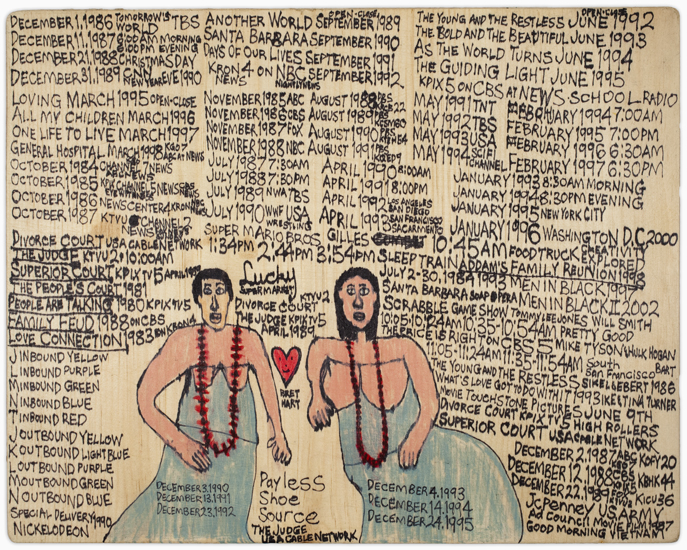 DECEMBER 1, 1986 TOMORROW'S WORLD TBS
DECEMBER 11, 1987 6:00AM MORNING 6:00PM EVENING
DECEMBER 21, 1988 CHRISTMAS DAY
DECEMBER 31, 1989 CNN NEW YEAR EVE 1990
LOVING MARCH 1995 OPEN-CLOSE
ALL MY CHILDREN MARCH 1996
ONE LIFE TO LIVE MARCH 1997
GENERAL HOSPITAL MARCH 1998 KGO ABC 7 NEWS
OCTOBER 1984 CHANNEL 7 NEWS
OCTOBER 1985 KPIX CHANNEL 5 NEWS
OCTOBER 1986 NEWSCENTER 4 KRON NBC
OCTOBER 1987 KTVU CHANNEL 2 NEWS
DIVORCE COURT USA CABLE NETWORK
THE JUDGE KTVU 2 10:00AM
SUPERIOR COURT KPIX TV 5 APRIL
THE PEOPLE'S COURT 1981
PEOPLE ARE TALKING 1980 KPIX TV 5
FAMILY FEUD 1988 ON CBS
LOVE CONNECTION 1983 ON KRON 4
J INBOUND YELLOW
L INBOUND PURPLE
M INBOUND GREEN
N INBOUND BLUE
T INBOUND RED
J OUTBOUND YELLOW
K OUTBOUND LIGHT BLUE
L OUTBOUND PURPLE
M OUTBOUND GREEN
N OUTBOUND BLUE
SPECIAL DELIVERY 1990
NICKLODEON
ANOTHER WORLD OPEN-CLOSE SEPTEMBER 1989
SANTA BARBARA SEPTEMBER 1990
DAYS OF OUR LIVES SEPTEMBER 1991
KRON 4 NEWS ON NBC NIGHTLY NEWS SEPTEMBER 1992
NOVEMBER 1985 ABC
NOVEMBER 1986 CBS
NOVEMBER 1987 FOX
NOVEMBER 1988 NBC
JULY 1987 7:30AM
JULY 1988 7:30PM
JULY 1989 NWA TBS
JULY 1990 WWF USA WRESTLING
AUGUST 1988
AUGUST 1989
AUGUST 1990
AUGUST 1991 KQED 9
APRIL 1990 8:00AM
APRIL 1991 8:00PM
APRIL 1992 LOS ANGELES SAN DIEGO
APRIL 1992 SAN FRANCISCO SACARMENTO
SUPER MARIO BROS. GILLES
1:34PM 2:44PM 3:54PM
Lucky
SUPERMARKET
KTVU 2
DIVORCE COURT
THE JUDGE KPIX TV 5
APRIL 1989
BRET
HART
DECEMBER 3, 1990
DECEMBER 13, 1991
DECEMBER 23, 1992
Payless
Shoe
Source
THE JUDGE
USA CABLE NETWORK
DECEMBER 4, 1993
DECEMBER 14, 1994
DECEMBER 24, 1995
THE YOUNG AND THE RESTLESS OPEN-CLOSE JUNE 1992
THE BOLD AND THE BEAUTIFUL JUNE 1993
AS THE WORLD TURNS JUNE 1994
THE GUIDING LIGHT JUNE 1995
KPIX 5 ON CBS AT NEWS SCHOOL RADIO
MAY 1991 TNT
MAY 1992 TBS
MAY 1993 USA
MAY 1994 CHANNEL
FEBRUARY 1994 7:00AM
FEBRUARY 1995 7:00PM
FEBRUARY 1996 6:30AM
FEBRUARY 1997 6:30PM
JANUARY 1993 8:30AM MORNING
JANUARY 1994 8:30PM EVENING
JANUARY 1995 NEW YORK CITY
JANUARY 1996 WASHINGTON D.C. 2000
10:45AM FOOD TRUCK CREATIVITY EXPLORED
SLEEP TRAIN ADDAMS FAMILY REUNION 1998
JULY 2-30, 1984 1993 MEN IN BLACK 1997
SANTA BARBARA SOAP OPERA MEN IN BLACK II 2002
SCRABBLE GAME SHOW TOMMY LEE JONES WILL SMITH
10:05-10:24AM 10:35-10:54AM PRETTY GOOD
THE PRICE IS RIGHT ON CBS 5 MIKE TYSON & HULK HOGAN
11:05-11:24AM 11:35-11:54AM South San Francisco BART
THE YOUNG AND THE RESTLESS SIKEL & EBERT 1986
WHAT'S LOVE GOT TO DO WITH IT 1993 IKE & TINA TURNER
MOVIE TOUCHSTONE PICTURES JUNE 9TH
DIVORCE COURT KPIX TV 5 HIGH ROLLERS
SUPERIOR COURT USA CABLE NETWORK
DECEMBER 2, 1987 ABC KOFY 20
DECEMBER 12, 1988 KBHK 44
DECEMBER 22, 1989 KICU 36
JcPenney US ARMY
Ad Council MOVIE FILM 1987
GOOD MORNING VIETNAM